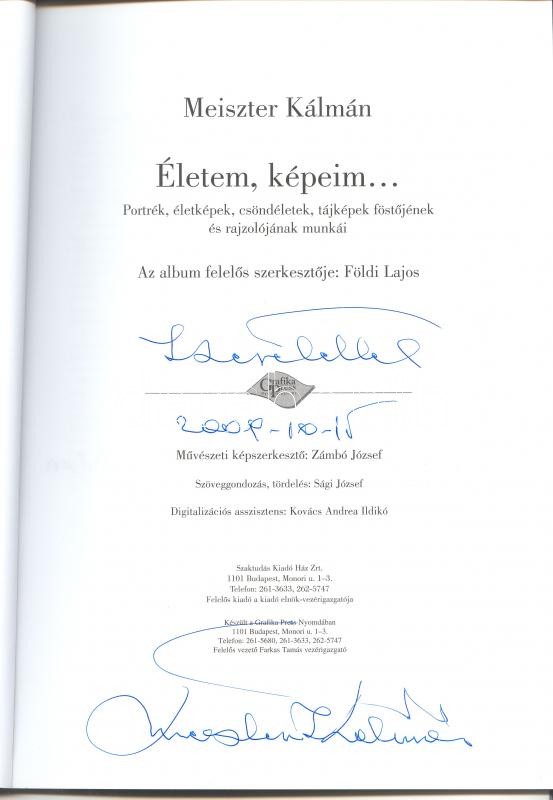 Meiszter Kálmán
Életem, képeim…
Portrék, életképek, csöndéletek, tájképek föstőjének
és rajzolójának munkái
Az album felelős szerkesztője: Földi Lajos
Szeretettel
Grafika
Press
2009-10-15
Művészeti képszerkesztő: Zámbó József
Szöveggondozás, tördelés: Sági József
Digitalizációs asszisztens: Kovács Andrea Ildikó
Szaktudás Kiadó Ház Zrt.
1101 Budapest, Monori u. 1–3.
Telefon: 261-3633, 262-5747
Felelős kiadó a kiadó elnök-vezérigazgatója
Készült a Grafika Press Nyomdában
1101 Budapest, Monori u. 1–3.
Telefon: 261-5680, 261-3633, 262-5747
Felelős vezető Farkas Tamás vezérigazgató
Meiszter Kálmán